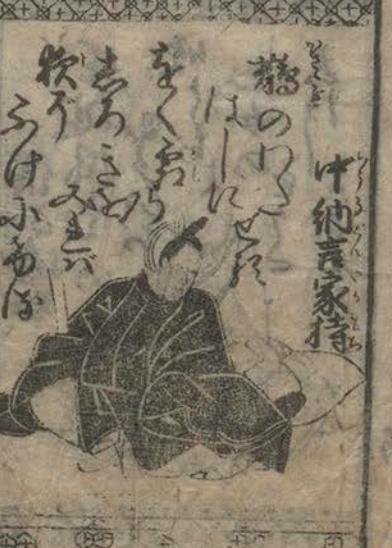 中納言家持
鵲のわたせる
はしに
をく霜の
しろきを
みれば
夜ぞ
ふけにける